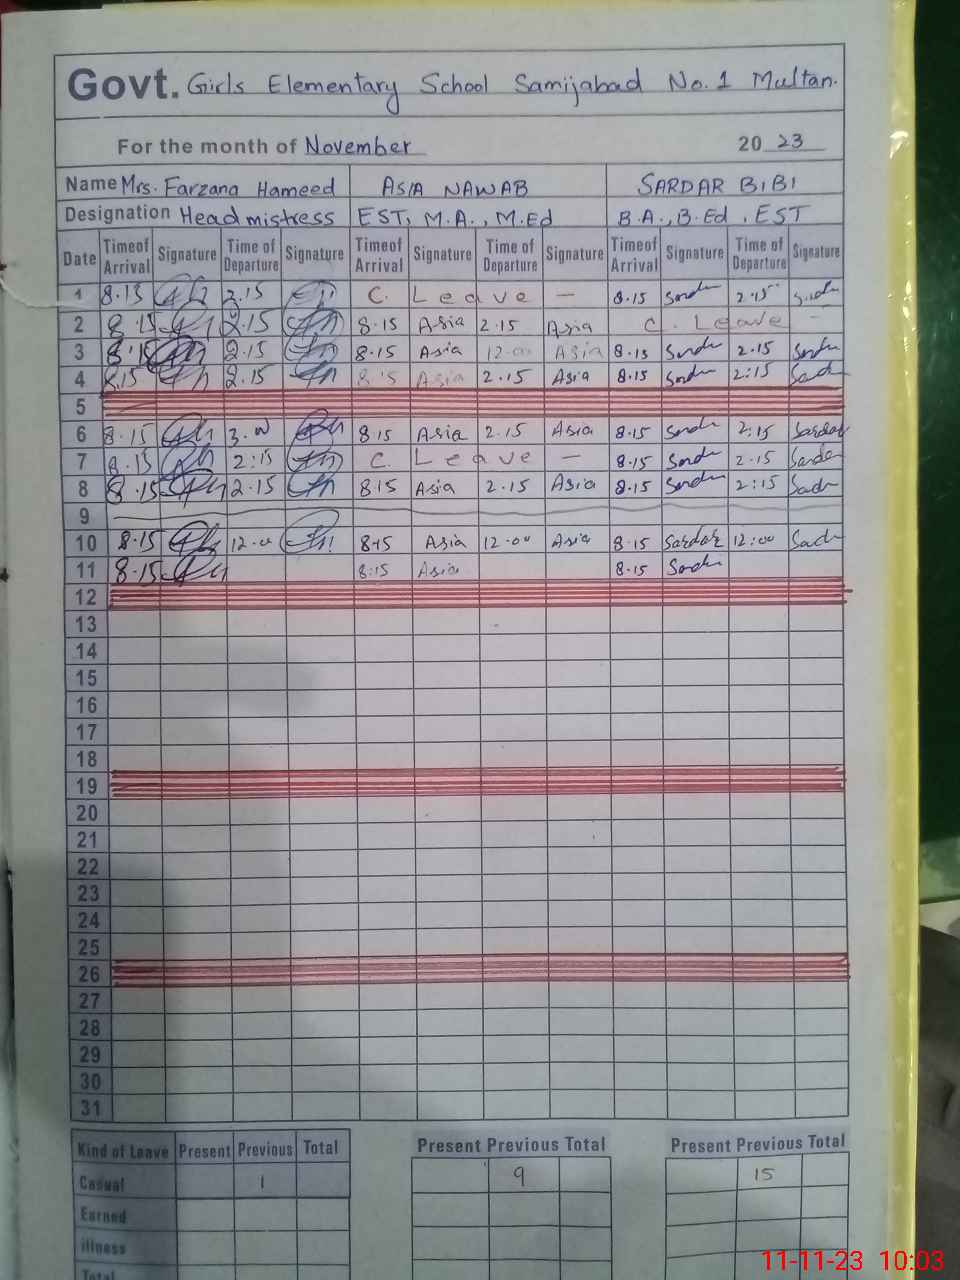 Govt. Girls Elementary School Samijabad No. 1 Multan.
For the month of November 20 23
Name Mrs. Farzana Hameed ASIA NAWAB SARDAR BIBI
Designation Headmistress EST, M.A., M.Ed B.A., B.Ed, EST
Date Timeof Arrival Signature Time of Departure Signature Timeof Arrival Signature Time of Departure Signature Timeof Arrival Signature Time of Departure Signature
1 8.15 2.15 C. Leave — 8.15 2.15
2 8.15 2.15 8.15 Asia 2.15 Asia C. Leave –
3 8.15 2.15 8.15 Asia 12.00 Asia 8.15 2.15
4 8.15 2.15 8.15 Asia 2.15 Asia 8.15 2:15
5
6 8.15 3.00 8.15 Asia 2.15 Asia 8.15 2:15 Sardar
7 8.15 2:15 C. Leave — 8.15 2.15 Sardar
8 8.15 2.15 8.15 Asia 2.15 Asia 8.15 2:15
9
10 8.15 12.00 8.15 Asia 12.00 Asia 8.15 Sardar 12:00
11 8.15 8:15 Asia 8.15
12
13
14
15
16
17
18
19
20
21
22
23
24
25
26
27
28
29
30
31
Kind of Leave Present Previous Total Present Previous Total Present Previous Total
Casual 1 9 15
Earned
illness
Total
11-11-23 10:03